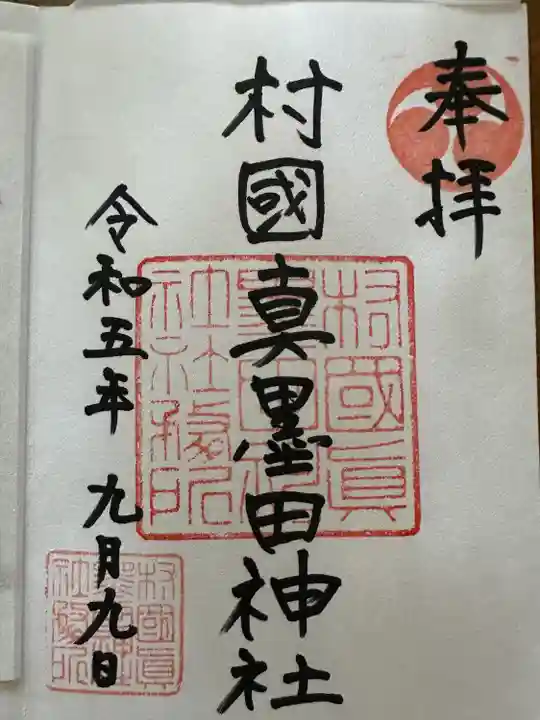 奉拝
村國真墨田神社
令和五年 九月九日
村國眞
墨田神
社社務所
村國眞
墨田神
社務所